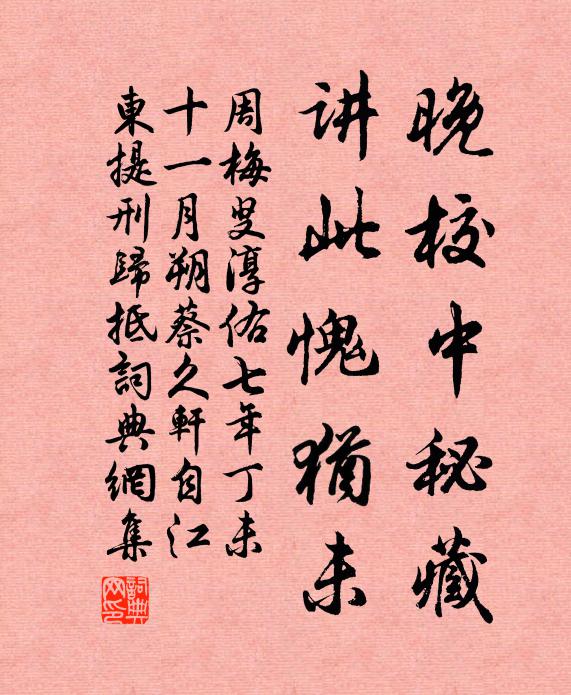 晚校中秘藏
讲此愧猶未
周梅叟淳佑七年丁未
十一月朔蔡久軒自江
東提刑歸抵詞典網集
詞典网印